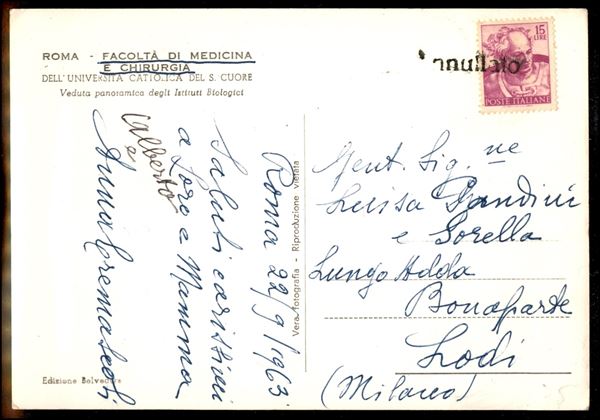 ROMA - FACOLTÀ DI MEDICINA
E CHIRURGIA
DELL'UNIVERSITÀ CATTOLICA DEL S. CUORE
Veduta panoramica degli Istituti Biologici
Roma 22/9/1963
Saluti carissimi
a Loro e Mamma
Anna Cremascoli
e
Alberto
Edizione Belvedere
Vera fotografia - Riproduzione vietata
Annullato
15
LIRE
POSTE ITALIANE
Gent. Sig.ne
Luisa Dandini
e Sorella
Lungo Adda
Bonaparte
Lodi
(Milano)